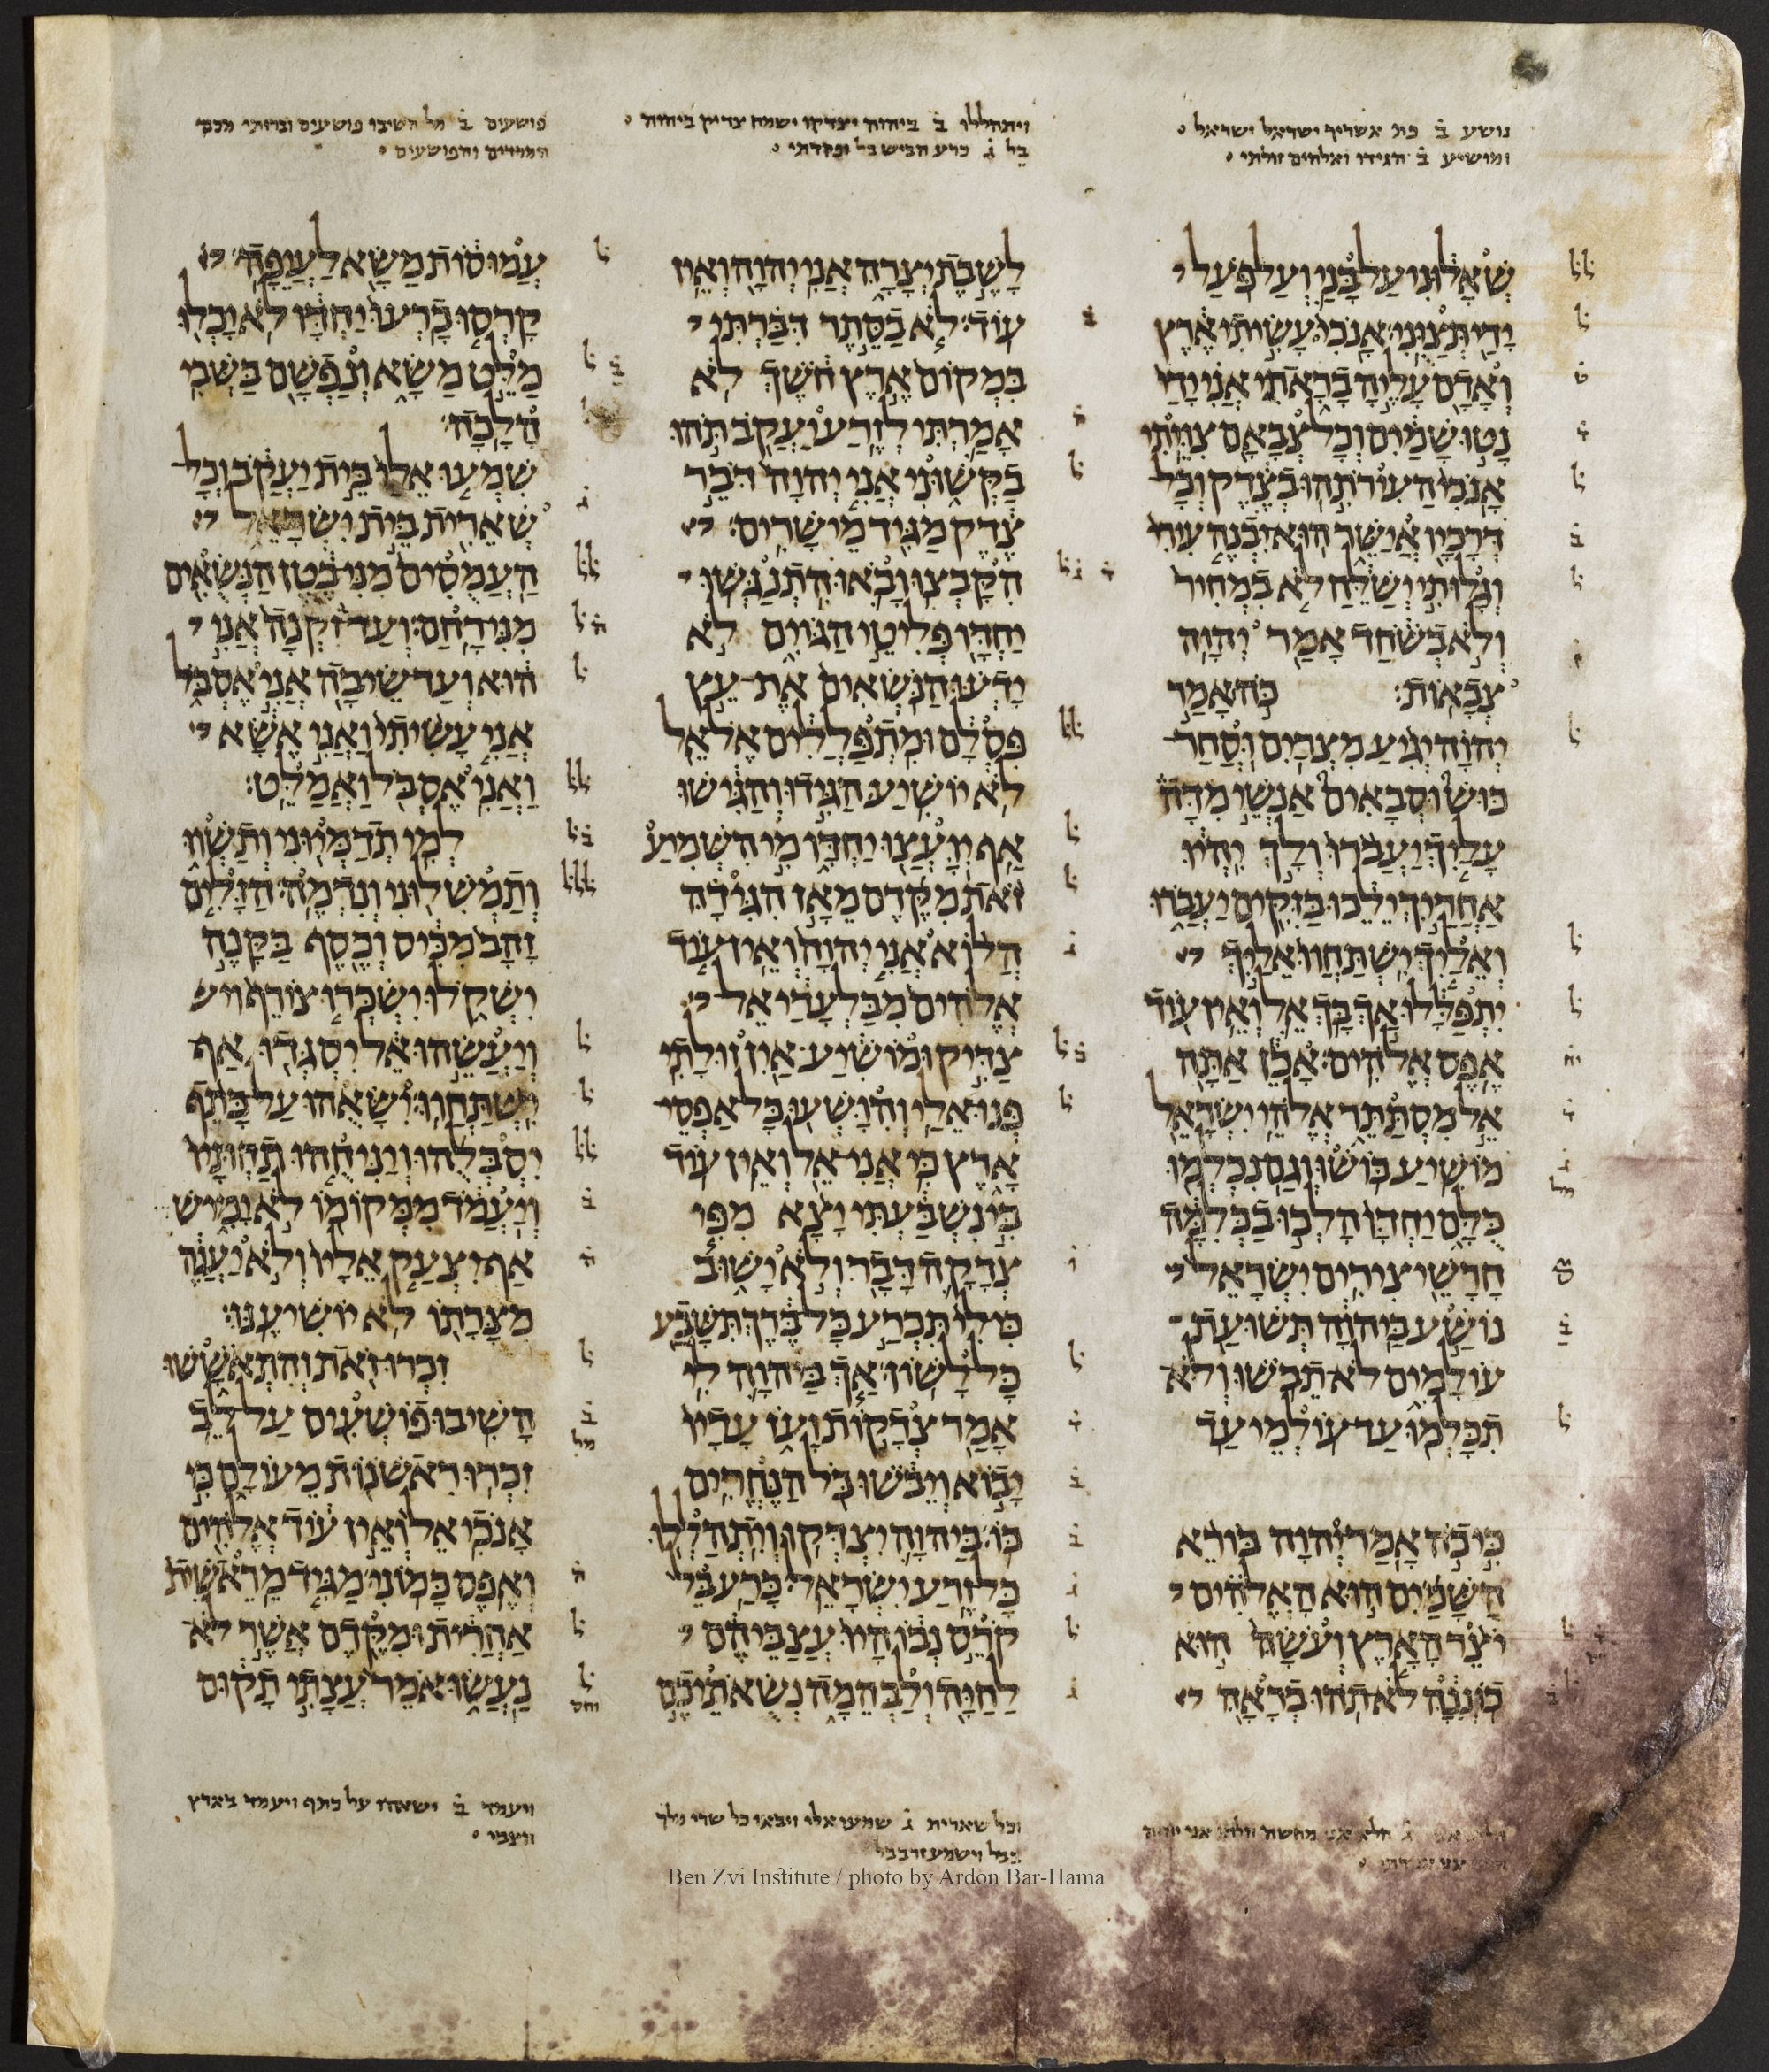 נושע ב אשריך ישראל ישראל
ומושיע ב הגידו ואלהים זולתי
שְׁאָלוּנִי עַל בָּנַי וְעַל פֹּעַל
יָדַי תְּצַוֻּנִי׃ אָנֹכִי עָשִׂיתִי אֶרֶץ
וְאָדָם עָלֶיהָ בָרָאתִי אֲנִי יָדַי
נָטוּ שָׁמַיִם וְכָל צְבָאָם צִוֵּיתִי׃
אָנֹכִי הַעִירֹתִהוּ בְצֶדֶק וְכָל
דְּרָכָיו אֲיַשֵּׁר הוּא יִבְנֶה עִירִי
וְגָלוּתִי יְשַׁלֵּחַ לֹא בִמְחִיר
וְלֹא בְשֹׁחַד אָמַר יְהוָה
צְבָאוֹת׃ כֹּה אָמַר
יְהוָה יְגִיעַ מִצְרַיִם וּסְחַר
כּוּשׁ וּסְבָאִים אַנְשֵׁי מִדָּה
עָלַיִךְ יַעֲבֹרוּ וְלָךְ יִהְיוּ
אַחֲרַיִךְ יֵלֵכוּ בַּזִּקִּים יַעֲבֹרוּ
וְאֵלַיִךְ יִשְׁתַּחֲווּ אֵלַיִךְ
יִתְפַּלָּלוּ אַךְ בָּךְ אֵל וְאֵין עוֹד
אֶפֶס אֱלֹהִים׃ אָכֵן אַתָּה
אֵל מִסְתַּתֵּר אֱלֹהֵי יִשְׂרָאֵל
מוֹשִׁיעַ׃ בּוֹשׁוּ וְגַם נִכְלְמוּ
כֻּלָּם יַחְדָּו הָלְכוּ בַכְּלִמָּה
חָרָשֵׁי צִירִים׃ יִשְׂרָאֵל
נוֹשַׁע בַּיהוָה תְּשׁוּעַת
עוֹלָמִים לֹא תֵבֹשׁוּ וְלֹא
תִכָּלְמוּ עַד עוֹלְמֵי עַד׃
כִּי כֹה אָמַר יְהוָה בּוֹרֵא
הַשָּׁמַיִם הוּא הָאֱלֹהִים
יֹצֵר הָאָרֶץ וְעֹשָׂהּ הוּא
כוֹנְנָהּ לֹא תֹהוּ בְרָאָהּ
ויתהללו ב ביהוה יצדקו ישמח צדיק ביהוה
בל ג כרע הביש בל ופקדתי
לָשֶׁבֶת יְצָרָהּ אֲנִי יְהוָה וְאֵין
עוֹד׃ לֹא בַסֵּתֶר דִּבַּרְתִּי
בִּמְקוֹם אֶרֶץ חֹשֶׁךְ לֹא
אָמַרְתִּי לְזֶרַע יַעֲקֹב תֹּהוּ
בַקְּשׁוּנִי אֲנִי יְהוָה דֹּבֵר
צֶדֶק מַגִּיד מֵישָׁרִים׃
הִקָּבְצוּ וָבֹאוּ הִתְנַגְּשׁוּ
יַחְדָּו פְּלִיטֵי הַגּוֹיִם לֹא
יָדְעוּ הַנֹּשְׂאִים אֶת־עֵץ
פִּסְלָם וּמִתְפַּלְלִים אֶל אֵל
לֹא יוֹשִׁיעַ׃ הַגִּידוּ וְהַגִּישׁוּ
אַף יִוָּעֲצוּ יַחְדָּו מִי הִשְׁמִיעַ
זֹאת מִקֶּדֶם מֵאָז הִגִּידָהּ
הֲלוֹא אֲנִי יְהוָה וְאֵין עוֹד
אֱלֹהִים מִבַּלְעָדַי אֵל
צַדִּיק וּמוֹשִׁיעַ אַיִן זוּלָתִי׃
פְּנוּ אֵלַי וְהִוָּשְׁעוּ כָּל אַפְסֵי
אָרֶץ כִּי אֲנִי אֵל וְאֵין עוֹד׃
בִּי נִשְׁבַּעְתִּי יָצָא מִפִּי
צְדָקָה דָּבָר וְלֹא יָשׁוּב
כִּי לִי תִּכְרַע כָּל בֶּרֶךְ תִּשָּׁבַע
כָּל לָשׁוֹן׃ אַךְ בַּיהוָה לִי
אָמַר צְדָקוֹת וָעֹז עָדָיו
יָבוֹא וְיֵבֹשׁוּ כֹּל הַנֶּחֱרִים
בּוֹ׃ בַּיהוָה יִצְדְּקוּ וְיִתְהַלְלוּ
כָּל זֶרַע יִשְׂרָאֵל׃ כָּרַע בֵּל
קֹרֵס נְבוֹ הָיוּ עֲצַבֵּיהֶם
לַחַיָּה וְלַבְּהֵמָה נְשֻׂאֹתֵיכֶם
פושעים ב מל השיבו פושעים וברותי מכם
המרדים והפושעים
עֲמוּסוֹת מַשָּׂא לַעֲיֵפָה׃
קָרְסוּ כָרְעוּ יַחְדָּו לֹא יָכְלוּ
מַלֵּט מַשָּׂא וְנַפְשָׁם בַּשְּׁבִי
הָלָכָה׃
שִׁמְעוּ אֵלַי בֵּית יַעֲקֹב וְכָל
שְׁאֵרִית בֵּית יִשְׂרָאֵל
הַעֲמֻסִים מִנִּי בֶטֶן הַנְּשֻׂאִים
מִנִּי רָחַם׃ וְעַד זִקְנָה אֲנִי
הוּא וְעַד שֵׂיבָה אֲנִי אֶסְבֹּל
אֲנִי עָשִׂיתִי וַאֲנִי אֶשָּׂא
וַאֲנִי אֶסְבֹּל וַאֲמַלֵּט׃
לְמִי תְדַמְּיוּנִי וְתַשְׁווּ
וְתַמְשִׁלוּנִי וְנִדְמֶה׃ הַזָּלִים
זָהָב מִכִּיס וְכֶסֶף בַּקָּנֶה
יִשְׁקֹלוּ יִשְׂכְּרוּ צוֹרֵף
וְיַעֲשֵׂהוּ אֵל יִסְגְּדוּ אַף
יִשְׁתַּחֲווּ׃ יִשָּׂאֻהוּ עַל כָּתֵף
יִסְבְּלֻהוּ וְיַנִּיחֻהוּ תַחְתָּיו
וְיַעֲמֹד מִמְּקוֹמוֹ לֹא יָמִישׁ
אַף יִצְעַק אֵלָיו וְלֹא יַעֲנֶה
מִצָּרָתוֹ לֹא יוֹשִׁיעֶנּוּ׃
זִכְרוּ זֹאת וְהִתְאֹשָׁשׁוּ
הָשִׁיבוּ פוֹשְׁעִים עַל לֵב׃
זִכְרוּ רִאשֹׁנוֹת מֵעוֹלָם כִּי
אָנֹכִי אֵל וְאֵין עוֹד אֱלֹהִים
וְאֶפֶס כָּמוֹנִי׃ מַגִּיד מֵרֵאשִׁית
אַחֲרִית וּמִקֶּדֶם אֲשֶׁר לֹא
נַעֲשׂוּ אֹמֵר עֲצָתִי תָקוּם
וכל שארית ג שמעו אלי ויבאו כל שרי מלך
בבל
ויעמד ב ישאהו על כתף ויעמד בארץ
הצבי
Ben Zvi Institute / photo by Ardon Bar-Hama